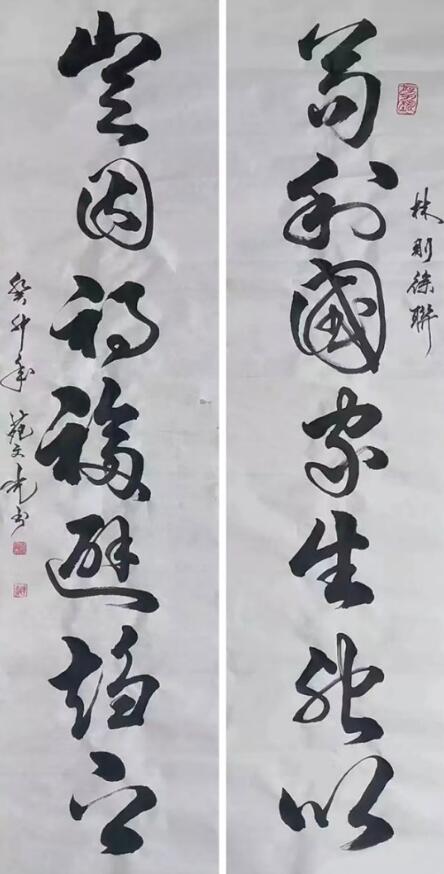 林則徐聯
苟利國家生死以
豈因禍福避趨之
癸卯年 文 书